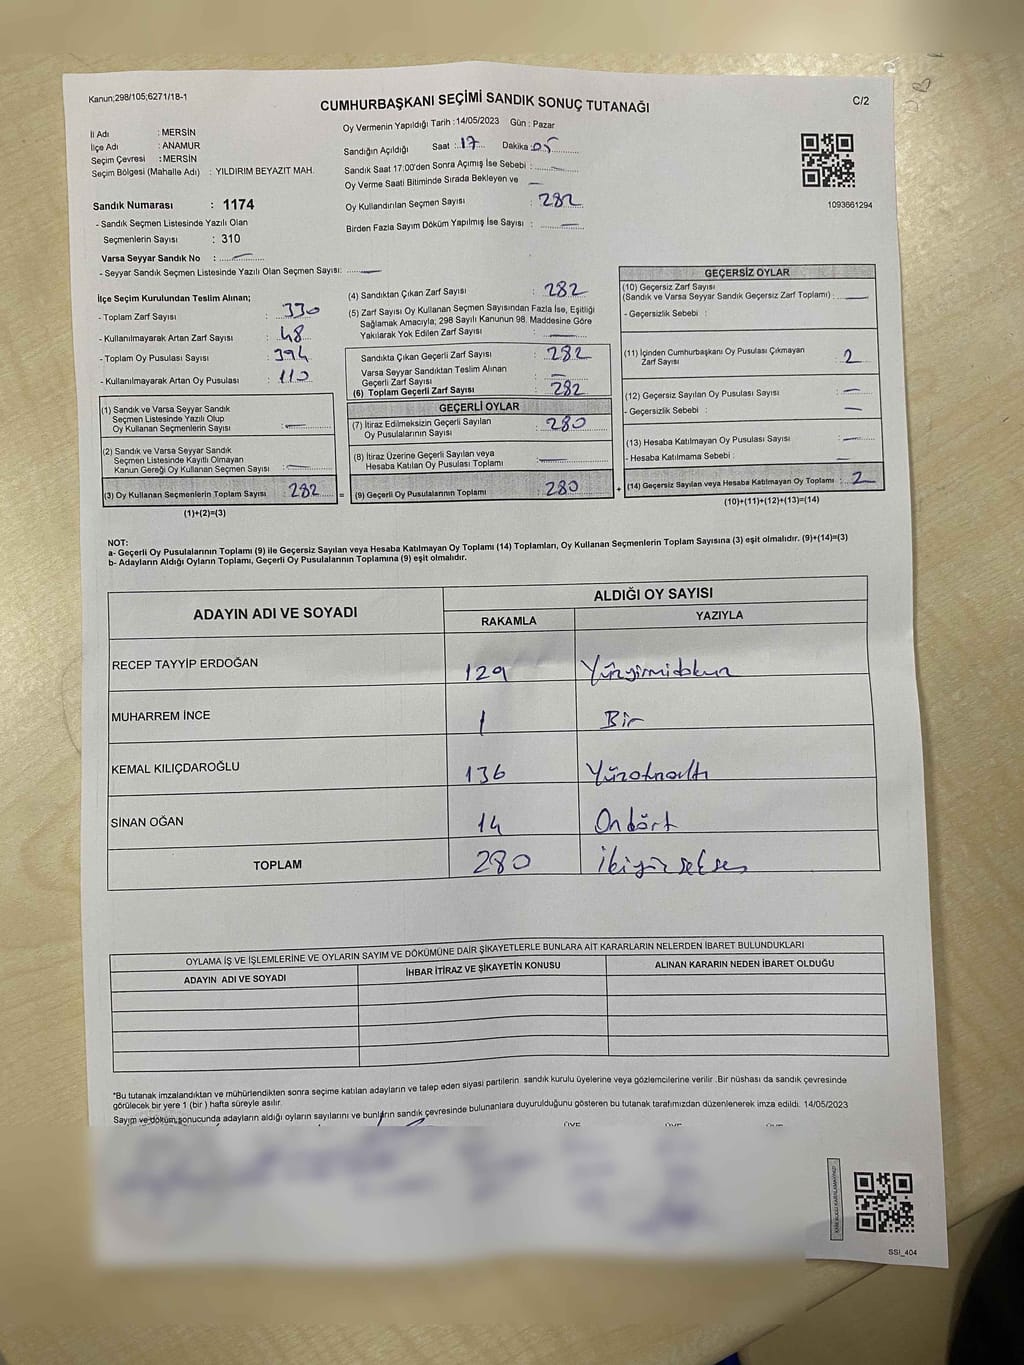 Kanun;298/105;6271/18-1
CUMHURBAŞKANI SEÇİMİ SANDIK SONUÇ TUTANAĞI
C/2
İl Adı : MERSİN
İlçe Adı : ANAMUR
Seçim Çevresi : MERSİN
Seçim Bölgesi (Mahalle Adı) : YILDIRIM BEYAZIT MAH.
Sandık Numarası : 1174
- Sandık Seçmen Listesinde Yazılı Olan
Seçmenlerin Sayısı : 310
Varsa Seyyar Sandık No : —
- Seyyar Sandık Seçmen Listesinde Yazılı Olan Seçmen Sayısı: —
Oy Vermenin Yapıldığı Tarih : 14/05/2023 Gün : Pazar
Sandığın Açıldığı Saat : 17 Dakika : 05
Sandık Saat 17:00'den Sonra Açımış İse Sebebi : —
Oy Verme Saati Bitiminde Sırada Bekleyen ve —
Oy Kullandırılan Seçmen Sayısı : 282
Birden Fazla Sayım Döküm Yapılmış İse Sayısı : —
1093661294
İlçe Seçim Kurulundan Teslim Alınan;
- Toplam Zarf Sayısı : 330
- Kullanılmayarak Artan Zarf Sayısı : 48
- Toplam Oy Pusulası Sayısı : 394
- Kullanılmayarak Artan Oy Pusulası : 110
(1) Sandık ve Varsa Seyyar Sandık
Seçmen Listesinde Yazılı Olup
Oy Kullanan Seçmenlerin Sayısı : —
(2) Sandık ve Varsa Seyyar Sandık
Seçmen Listesinde Kayıtlı Olmayan
Kanun Gereği Oy Kullanan Seçmen Sayısı : —
(3) Oy Kullanan Seçmenlerin Toplam Sayısı 282 =
(1)+(2)=(3)
(4) Sandıktan Çıkan Zarf Sayısı : 282
(5) Zarf Sayısı Oy Kullanan Seçmen Sayısından Fazla İse, Eşitliği
Sağlamak Amacıyla, 298 Sayılı Kanunun 98. Maddesine Göre
Yakılarak Yok Edilen Zarf Sayısı : —
Sandıkta Çıkan Geçerli Zarf Sayısı : 282
Varsa Seyyar Sandıktan Teslim Alınan
Geçerli Zarf Sayısı : —
(6) Toplam Geçerli Zarf Sayısı : 282
GEÇERLİ OYLAR
(7) İtiraz Edilmeksizin Geçerli Sayılan
Oy Pusulalarının Sayısı : 280
(8) İtiraz Üzerine Geçerli Sayılan veya
Hesaba Katılan Oy Pusulası Toplamı : —
(9) Geçerli Oy Pusulalarının Toplamı : 280 +
GEÇERSİZ OYLAR
(10) Geçersiz Zarf Sayısı
(Sandık ve Varsa Seyyar Sandık Geçersiz Zarf Toplamı) : —
- Geçersizlik Sebebi :
(11) İçinden Cumhurbaşkanı Oy Pusulası Çıkmayan
Zarf Sayısı : 2
(12) Geçersiz Sayılan Oy Pusulası Sayısı : —
- Geçersizlik Sebebi : —
(13) Hesaba Katılmayan Oy Pusulası Sayısı : —
- Hesaba Katılmama Sebebi : —
(14) Geçersiz Sayılan veya Hesaba Katılmayan Oy Toplamı : 2
(10)+(11)+(12)+(13)=(14)
NOT:
a- Geçerli Oy Pusulalarının Toplamı (9) ile Geçersiz Sayılan veya Hesaba Katılmayan Oy Toplamı (14) Toplamları, Oy Kullanan Seçmenlerin Toplam Sayısına (3) eşit olmalıdır. (9)+(14)=(3)
b- Adayların Aldığı Oyların Toplamı, Geçerli Oy Pusulalarının Toplamına (9) eşit olmalıdır.
ADAYIN ADI VE SOYADI
ALDIĞI OY SAYISI
RAKAMLA YAZIYLA
RECEP TAYYİP ERDOĞAN 129 Yüzyirmidokuz
MUHARREM İNCE 1 Bir
KEMAL KILIÇDAROĞLU 136 Yüzotuzaltı
SİNAN OĞAN 14 Ondört
TOPLAM 280 İkiyüzseksen
OYLAMA İŞ VE İŞLEMLERİNE VE OYLARIN SAYIM VE DÖKÜMÜNE DAİR ŞİKAYETLERLE BUNLARA AİT KARARLARIN NELERDEN İBARET BULUNDUKLARI
ADAYIN ADI VE SOYADI İHBAR İTİRAZ VE ŞİKAYETİN KONUSU ALINAN KARARIN NEDEN İBARET OLDUĞU
*Bu tutanak imzalandıktan ve mühürlendikten sonra seçime katılan adayların ve talep eden siyasi partilerin sandık kurulu üyelerine veya gözlemcilerine verilir .Bir nüshası da sandık çevresinde
görülecek bir yere 1 (bir ) hafta süreyle asılır.
Sayım ve döküm sonucunda adayların aldığı oyların sayılarını ve bunların sandık çevresinde bulunanlara duyurulduğunu gösteren bu tutanak tarafımızdan düzenlenerek imza edildi. 14/05/2023
SSI_404